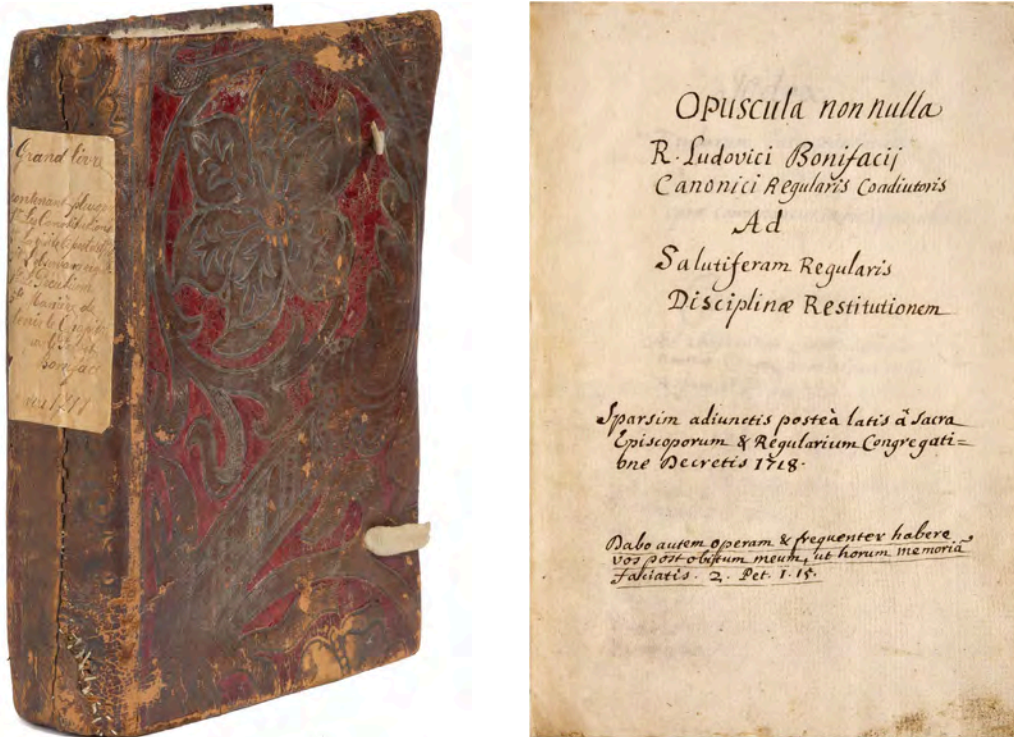 Grand livre
contenant plusieurs
Les Constitutions
de
Bonifaci
Opuscula nonnulla
R. Ludovici Bonifacij
Canonici Regularis Coadiutoris
Ad
Salutiferam Regularis
Disciplinæ Restitutionem
Sparsim adiunctis posteà latis â Sacra
Episcoporum & Regularium Congregati=
one Decretis 1718.
Dabo autem operam & frequenter habere
vos post obitum meum, ut horum memoriã
faciatis. 2. Pet. 1. 15.